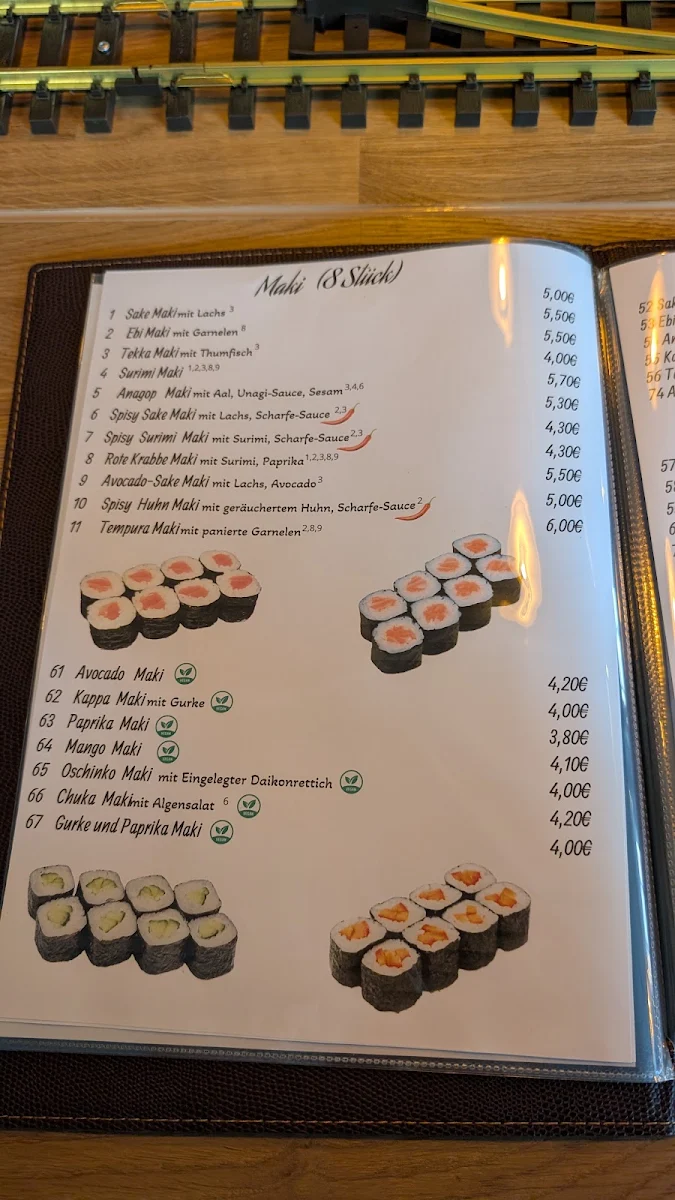 Maki (8 Stück)
1 Sake Maki mit Lachs 3 5,00€
2 Ebi Maki mit Garnelen 8 5,50€
3 Tekka Maki mit Thumfisch 3 5,50€
4 Surimi Maki 1,2,3,8,9 4,00€
5 Anagop Maki mit Aal, Unagi-Sauce, Sesam 3,4,6 5,70€
6 Spisy Sake Maki mit Lachs, Scharfe-Sauce 2,3 5,30€
7 Spisy Surimi Maki mit Surimi, Scharfe-Sauce 2,3 4,30€
8 Rote Krabbe Maki mit Surimi, Paprika 1,2,3,8,9 4,30€
9 Avocado-Sake Maki mit Lachs, Avocado 3 5,50€
10 Spisy Huhn Maki mit geräuchertem Huhn, Scharfe-Sauce 2 5,00€
11 Tempura Maki mit panierte Garnelen 2,8,9 6,00€
61 Avocado Maki 4,20€
62 Kappa Maki mit Gurke 4,00€
63 Paprika Maki 3,80€
64 Mango Maki 4,10€
65 Oschinko Maki mit Eingelegter Daikonrettich 4,00€
66 Chuka Maki mit Algensalat 6 4,20€
67 Gurke und Paprika Maki 4,00€
52
53 Ebi
56
74
57